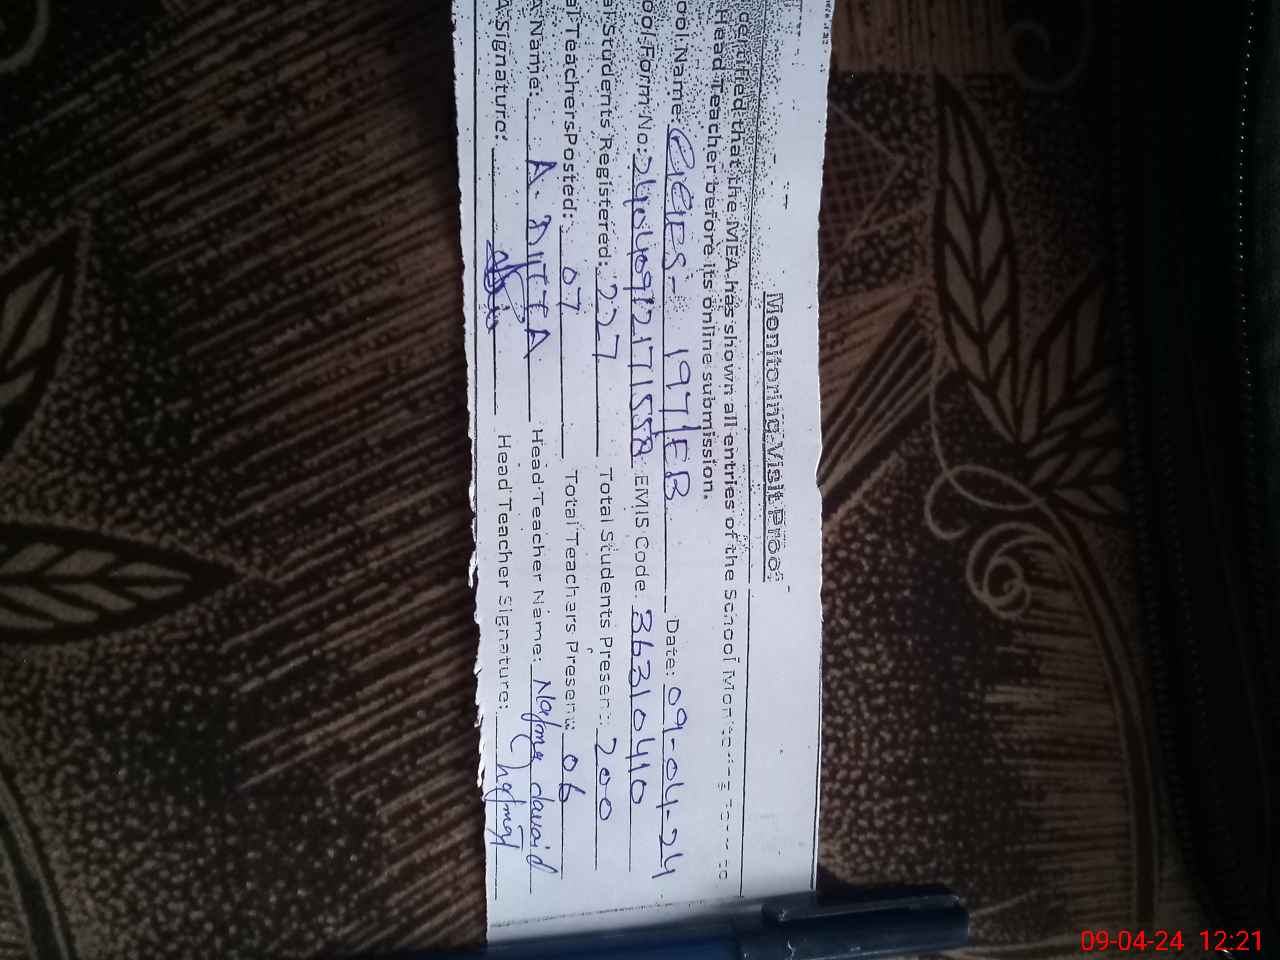 Monitoring Visit Proof
certified that the MEA has shown all entries of the School Monitoring Form to
Head Teacher before its online submission.
ool Name: GGES- 197/EB Date: 09-04-24
ool Form No: EMIS Code: 36310410
al Students Registered: 227 Total Students Present: 200
al Teachers Posted: 07 Total Teachers Present: 06
A Name: A. DITTA Head Teacher Name: Najma
A Signature: Head Teacher Signature: Najma
09-04-24 12:21